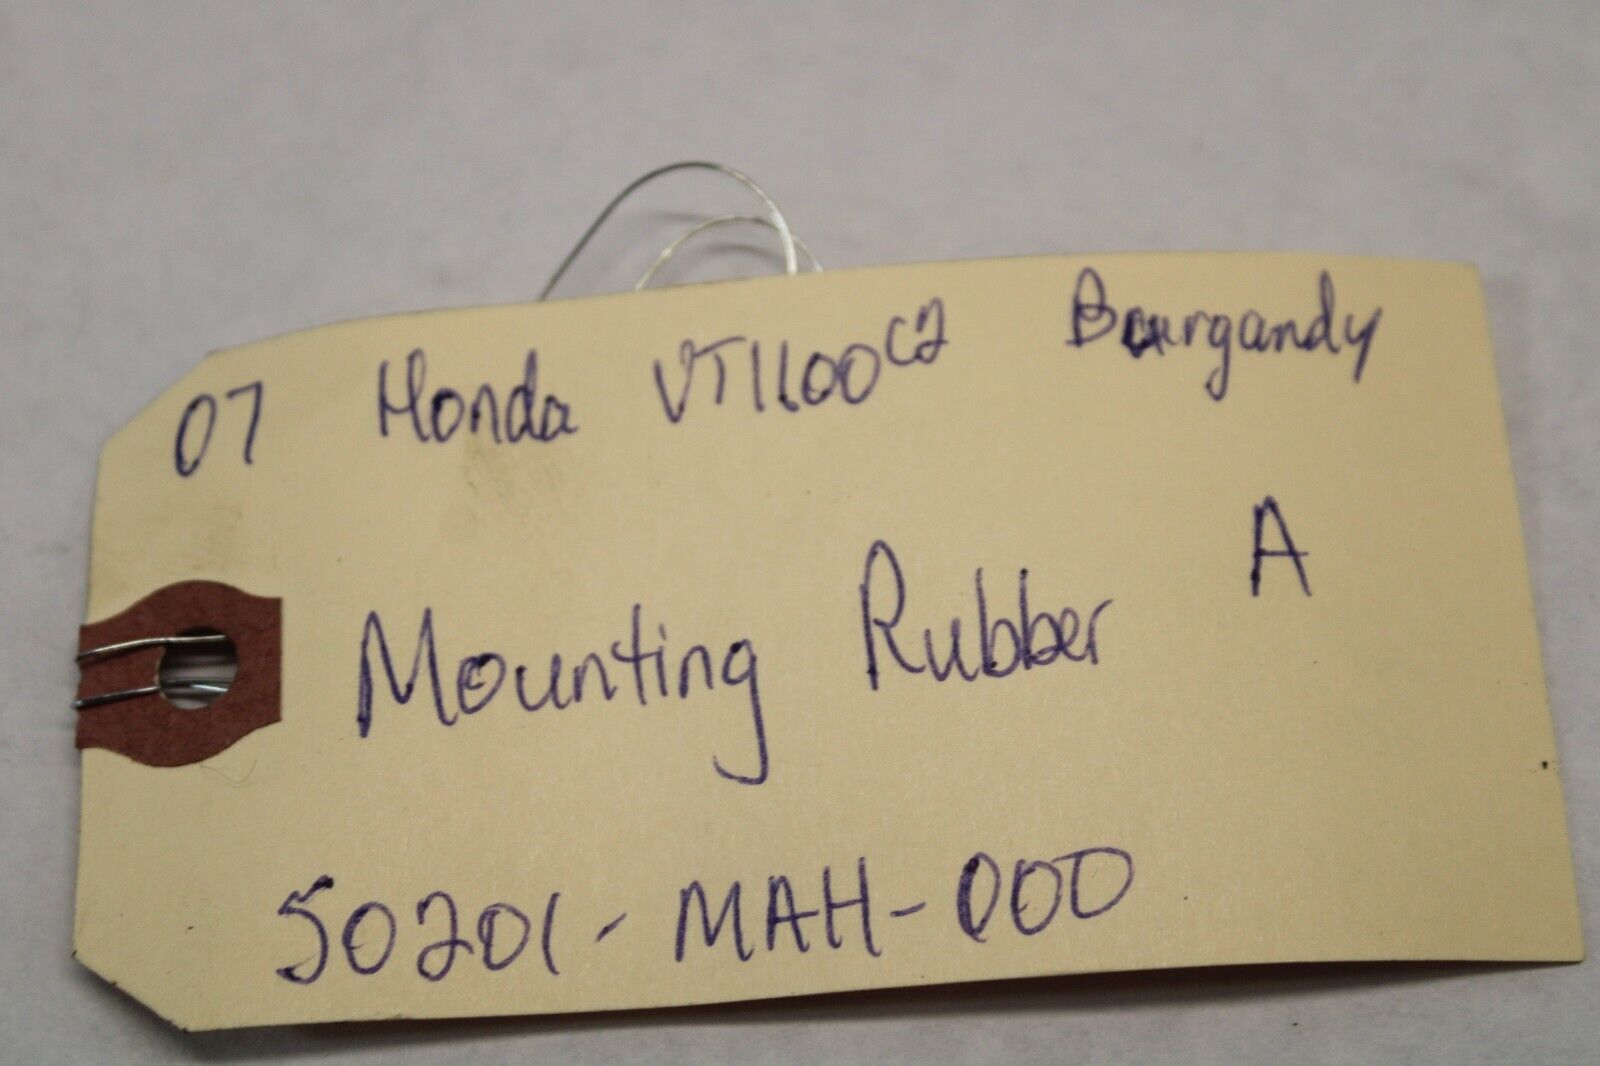 07 Honda VT1100C2 Burgandy
Mounting Rubber A
50201-MAH-000